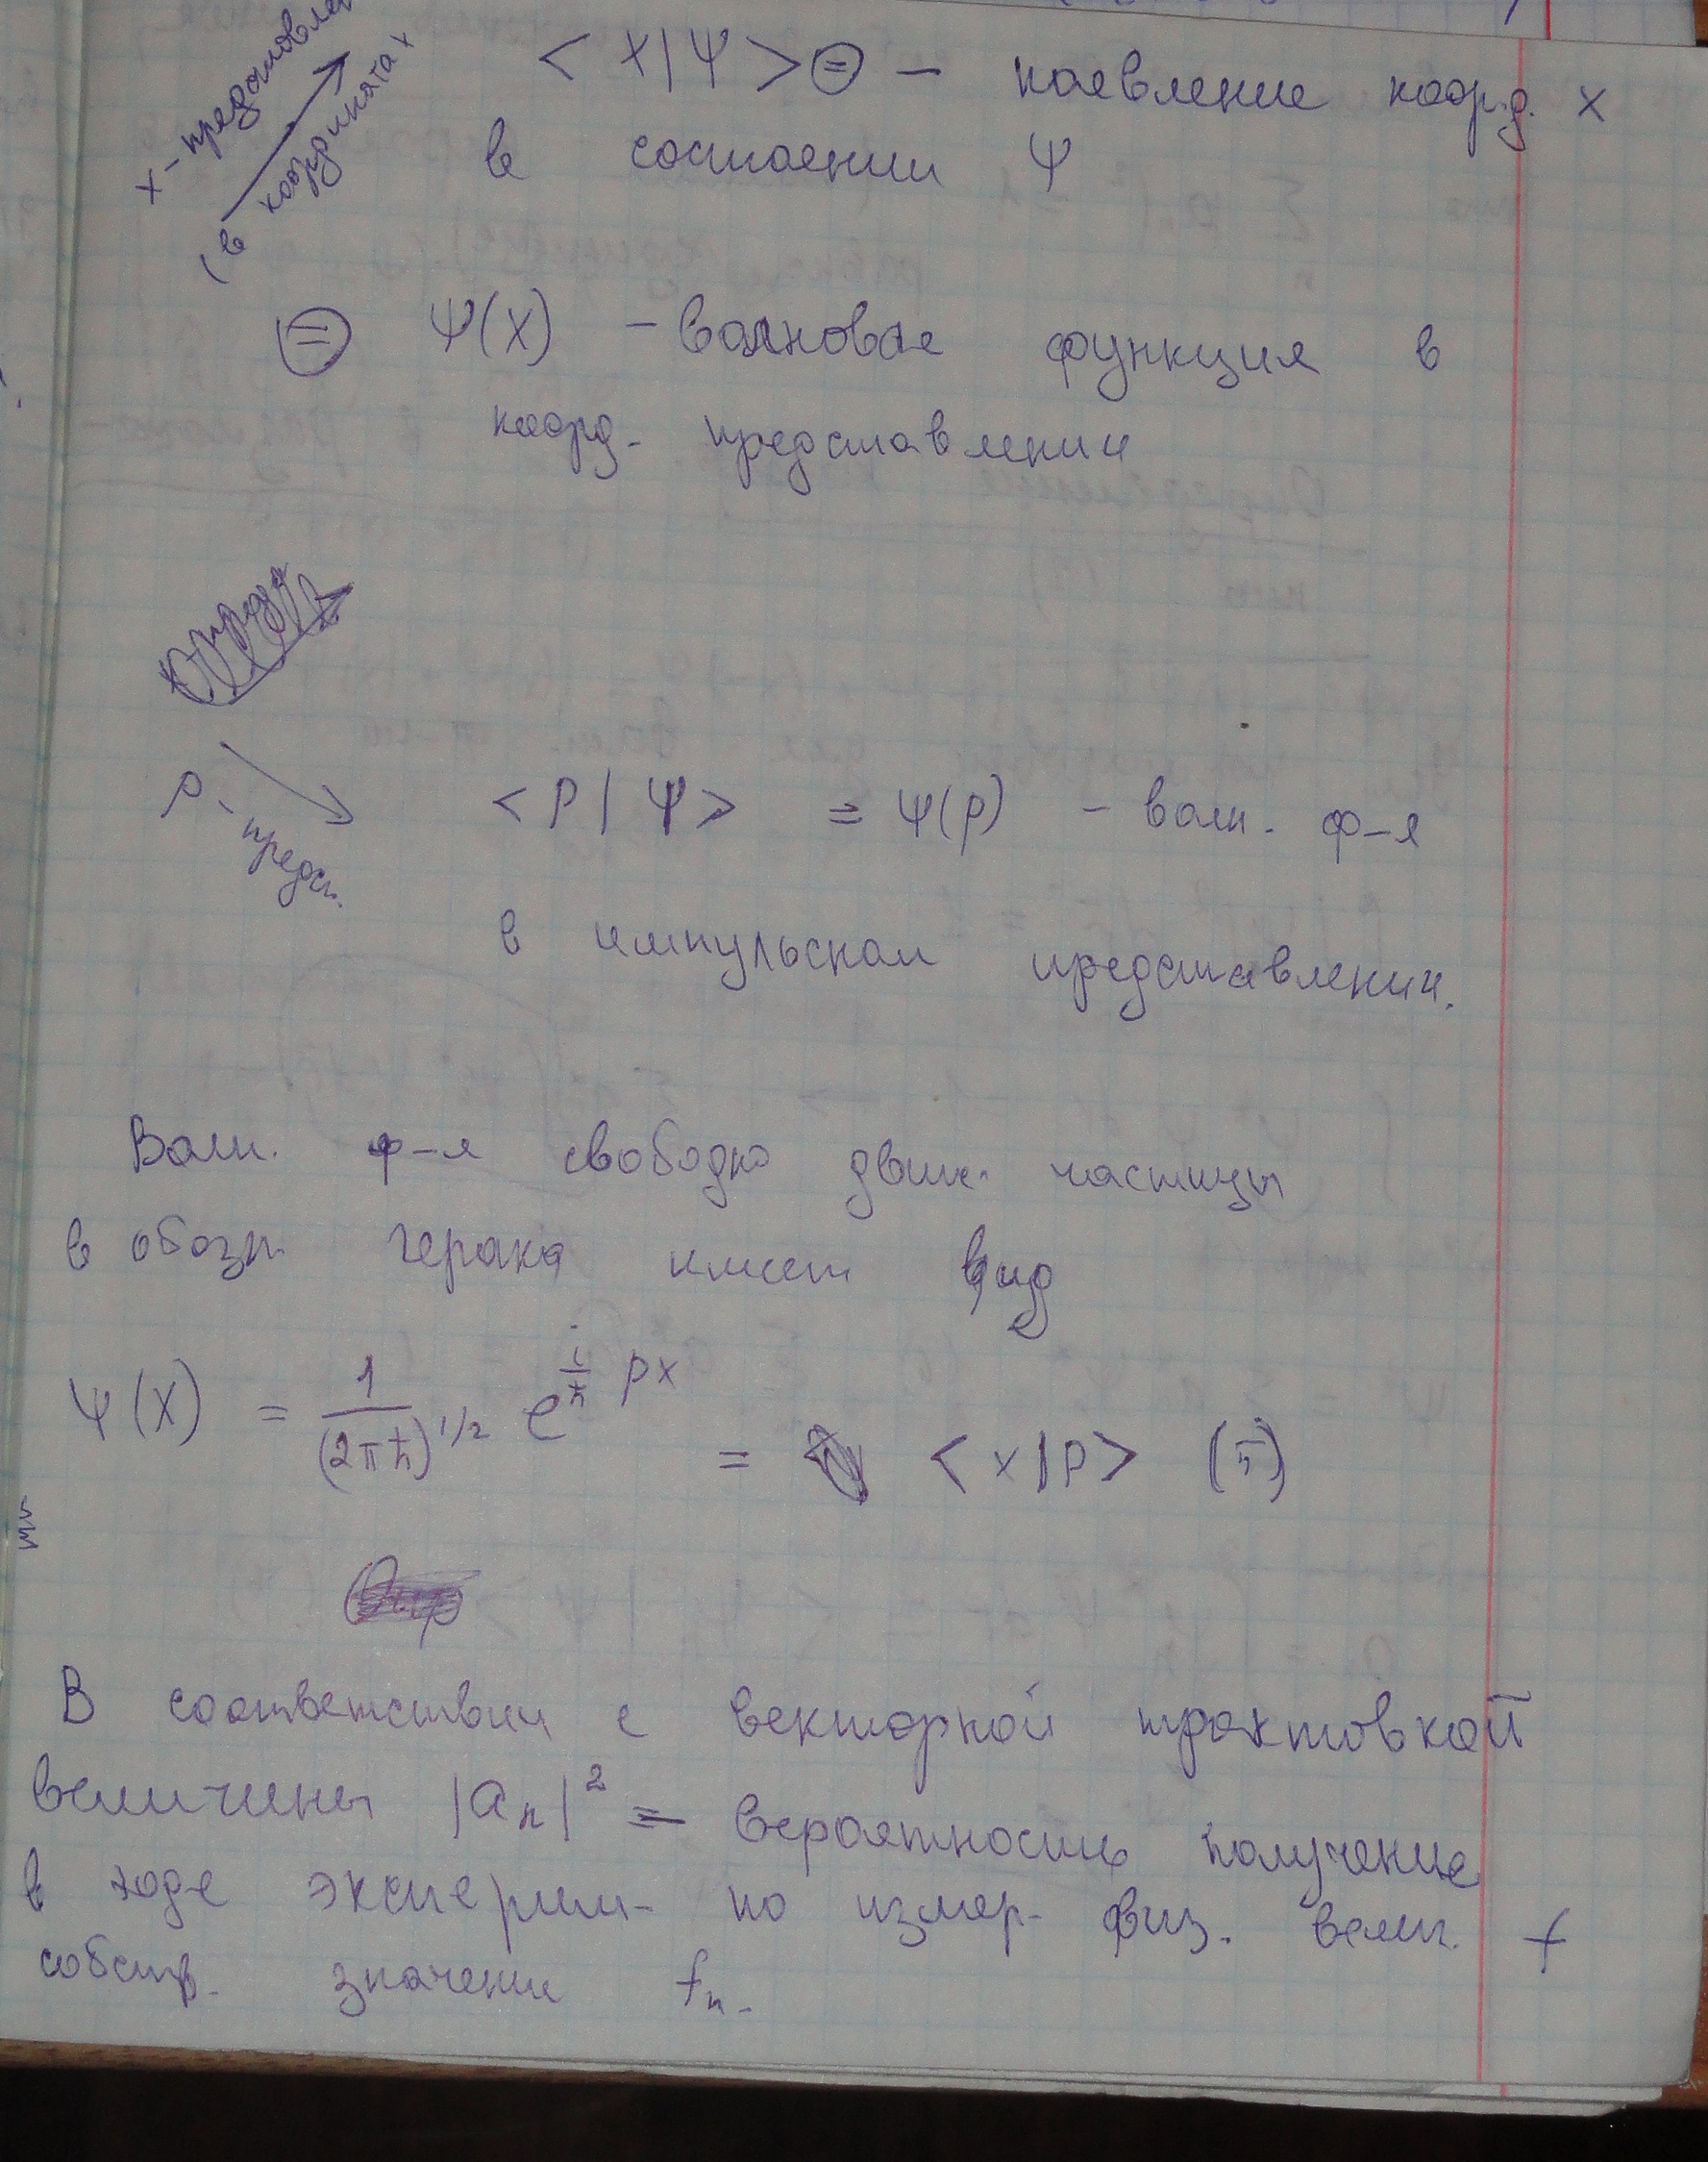 х-представлен
(в координатах
< x | Ψ > ⊜ – появление коорд. x
в состоянии Ψ
⊜ Ψ(x) – волновая функция в
коорд. представлении
p - предст.
< p | Ψ > = Ψ(p) – волн. ф-я
в импульсном представлении.
Волн. ф-я свободно движ. частицы
в обозн. дирака имеет вид
Ψ(x) = 1/(2πħ)^1/2 e^(i/ħ px) = < x | p > (5)
В соответствии с векторной трактовкой
величины |aₙ|² – вероятность получение
в ходе эксперим- по измер- физ. велич. f
собств. значение fₙ.